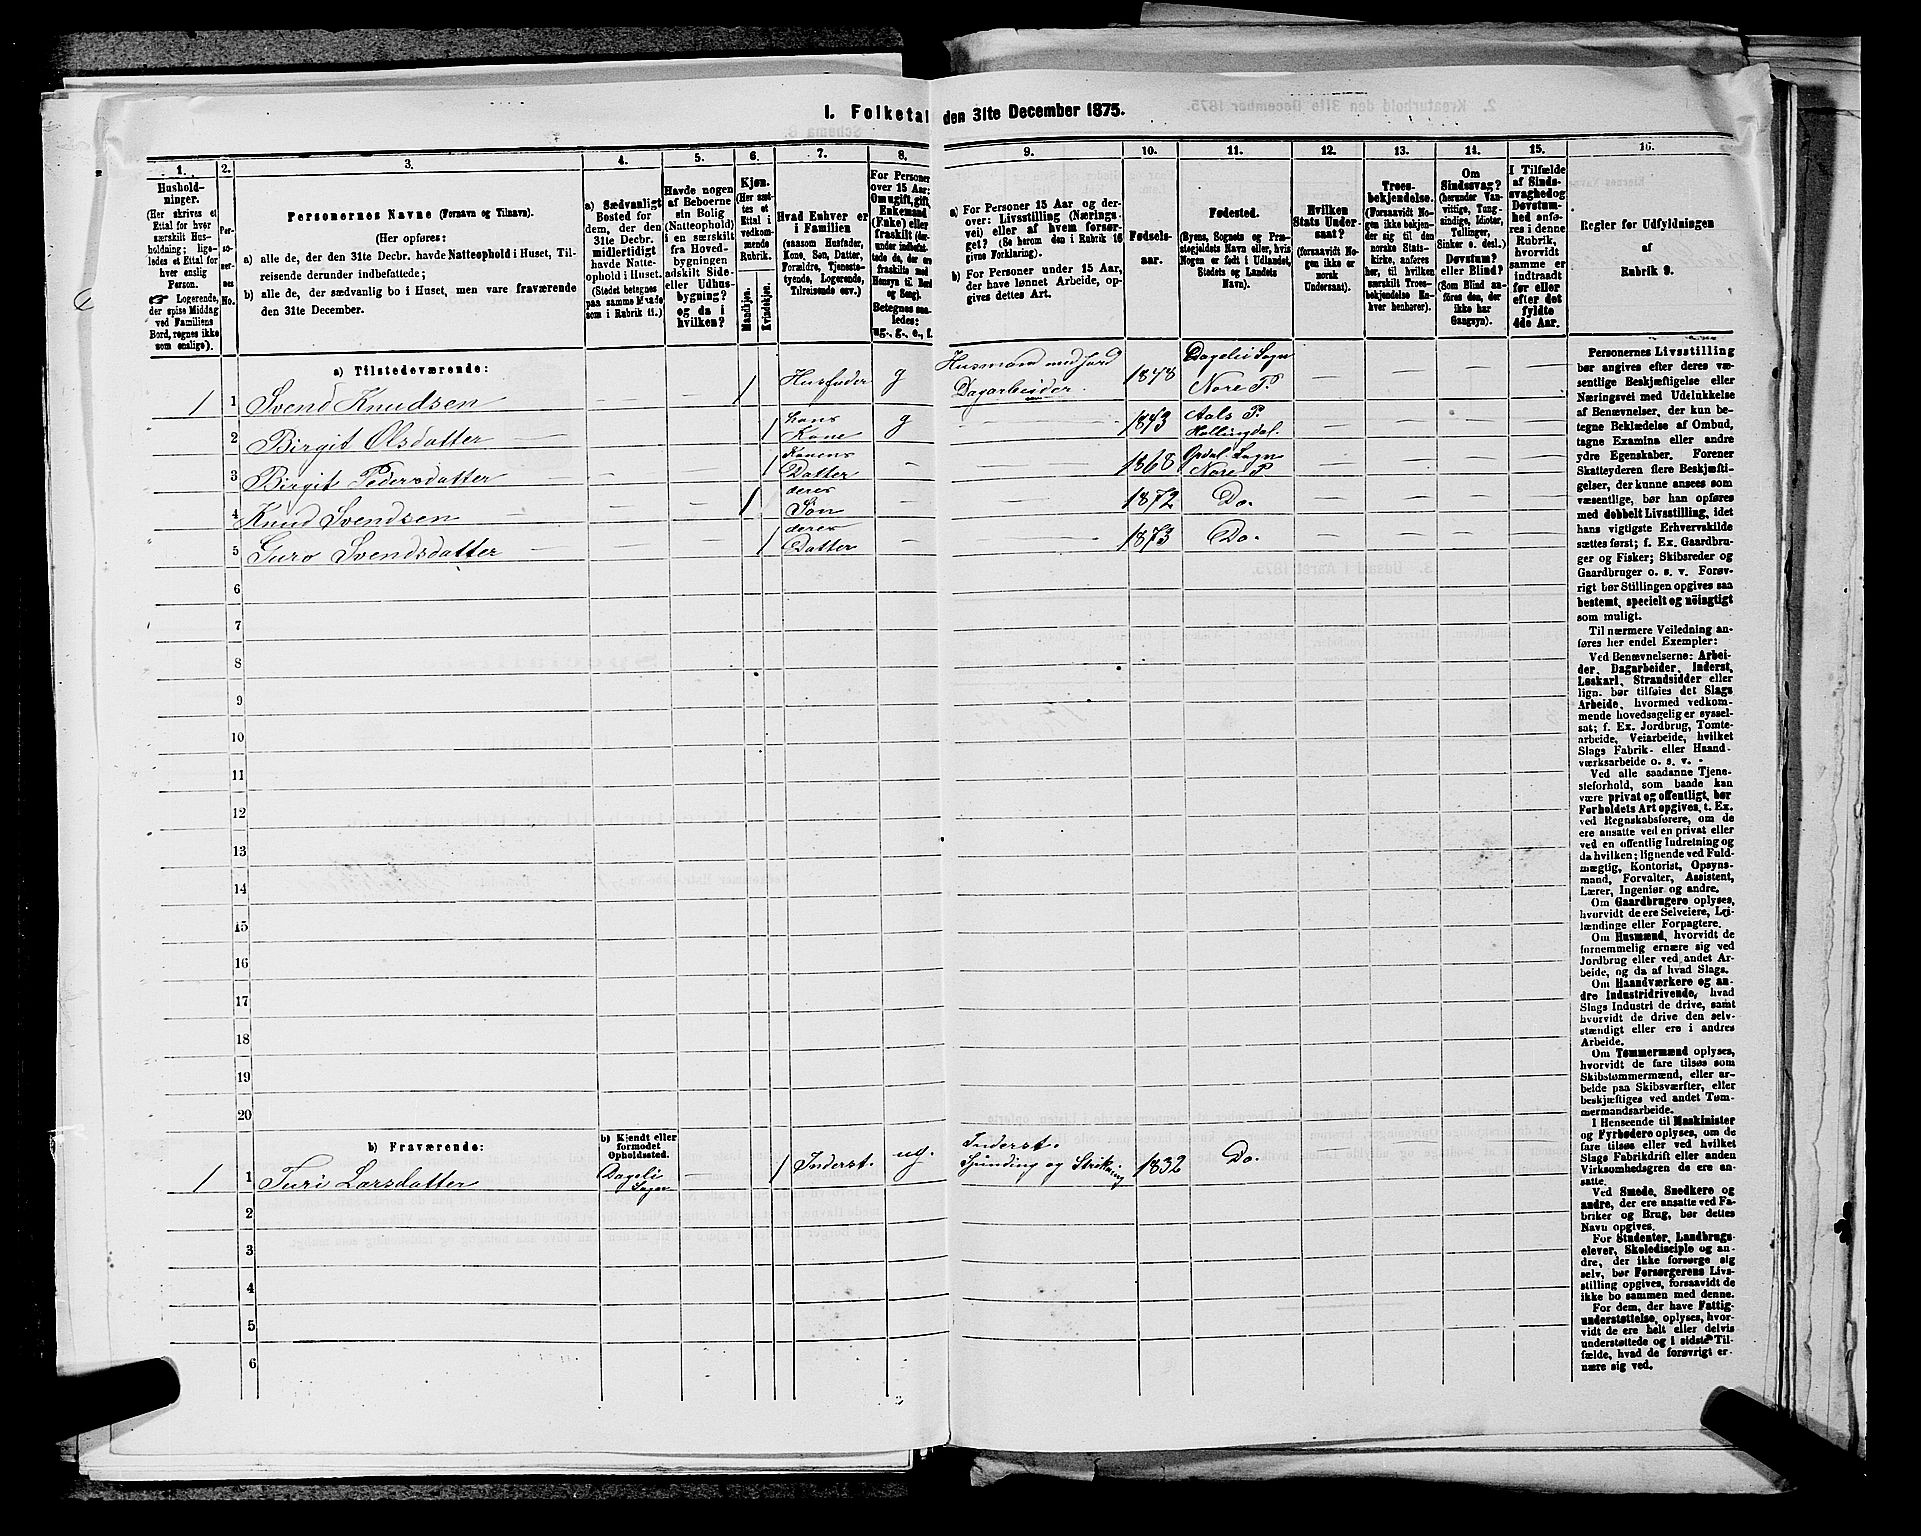 I. Folketal den 31te December 1875.
1. 2. 3. 4. 5. 6. 7. 8. 9. 10. 11. 12. 13. 14. 15. 16.
Hushold-
ninger.
(Her skrives et
Ettal for hver
særskilt Hus-
holdning; lige-
ledes et Ettal for
hver enslig
Person.
Logerende,
der spise Middag
ved Familiens
Bord, regnes ikke
som enslige).
Per-
so-
ner-
nes
No.
Personernes Navne (Fornavn og Tilnavn).
(Her opføres:
a) alle de, der den 31te Decbr. havde Natteophold i Huset, Til-
reisende derunder indbefattede;
b) alle de, der sædvanlig bo i Huset, men vare fraværende
den 31te December.
a) Sædvanligt
Bosted for
dem, der den
31te Decbr.
midlertidigt
havde Natte-
ophold i Huset.
(Stedet betegnes
paa samme Maade
som i Rubrik 11.)
Havde nogen
af Beboerne
sin Bolig
(Natteophold)
i en særskilt
fra Hoved-
bygningen
adskilt Side-
eller Udhus-
bygning?
og da i
hvilken?
Kjøn.
(Her sæt-
tes et
Ettal i
vedkom-
mende
Rubrik.
Mandkjøn.
Kvindekjøn.
Hvad Enhver er
i Familien
(saasom Husfader,
Kone, Søn, Datter,
Forældre, Tjeneste-
tyende, Logerende,
Tilreisende osv.)
For Personer
over 15 Aar:
Om ugift, gift,
Enkemand
(Enke) eller
fraskilt (der-
under indbefat-
tede de, der ere
fraskilte med
Hensyn til Bord
og Seng).
Betegnes saa-
ledes:
ug., g., e., f.
a) For Personer 15 Aar og der-
over: Livsstilling (Nærings-
vei) eller af hvem forsør-
get? (Se herom den i Rubrik 16
givne Forklaring).
b) For Personer under 15 Aar,
der have lønnet Arbeide, op-
gives dettes Art.
Fødsels-
aar.
Fødested.
(Byens, Sognets og Præ-
stegjeldets Navn eller, hvis
Nogen er født i Udlandet,
Stedets og Landets
Navn).
Hvilken
Stats Under-
saat?
(forsaavidt No-
gen ikke er
norsk
Undersaat).
Troes-
bekjendelse.
(Forsaavidt No-
gen ikke bekjen-
der sig til den
norske Stats-
kirke, anføres
her, til hvilken
særskilt Troes-
bekjendelse En-
hver henhører).
Om
Sindssvag?
(herunder Van-
vittige, Tung-
sindige, Idioter,
Tullinger,
Sinker o. desl.)
Døvstum?
eller Blind?
(Som Blind an-
føres den, der
ikke har
Gangsyn).
I Tilfælde
af Sinds-
svaghed og
Døvstum-
hed anfø-
res i denne
Rubrik,
hvorvidt
samme er
indtraadt
før eller
efter det
fyldte
4de Aar.
Regler for Udfyldningen
af
Rubrik 9.
a) Tilstedeværende:
1 1 Svend Knudsen — — 1 Husfader g Husmand med Jord Dagarbeider 1848 Dagelei Sogn Nore P. — — — —
2 Birgit Olsdatter — — 1 hans Kone g — 1843 Aals P. Hallingdal. — — — —
3 Birgit Pedersdatter — — 1 Konens Datter — — 1868 Opdal Sogn Nore P. — — — —
4 Knud Svendsen — — 1 deres Søn — — 1872 Do. — — — —
5 Guro Svendsdatter — — 1 deres Datter — — 1873 Do. — — — —
6
7
8
9
10
11
12
13
14
15
16
17
18
19
20
b) Fraværende:
b) Kjendt eller
formodet
Opholdssted.
1 1 Turi Larsdatter Dageli Sogn — 1 Inderst. ug. Inderst. Spinding og Strikning 1832 Do.
2
3
4
5
6
Personernes Livsstilling
bør angives efter deres væ-
sentlige Beskjæftigelse eller
Næringsvei med Udelukkelse
af Benævnelser, der kun be-
tegne Beklædelse af Ombud,
tagne Examina eller andre
ydre Egenskaber. Forener
Skatteyderen flere Beskjæfti-
gelser, der kunne ansees som
væsentlige, bør han opføres
med dobbelt Livsstilling, idet
hans vigtigste Erhvervskilde
sættes først; f. Ex. Gaardbru-
ger og Fisker; Skibsreder og
Gaardbruger o. s. v. Forøv-
rigt bør Stillingen opgives saa
bestemt, specielt og nöiagtigt
som muligt.
Til nærmere Veiledning an-
føres her endel Exempler:
Ved Benævnelserne: Arbei-
der, Dagarbeider, Inderst,
Løskarl, Strandsidder eller
lign. bør tilføies det Slags
Arbeide, hvormed vedkom-
mende hovedsagelig er syssel-
sat; f. Ex. Jordbrug, Tomte-
arbeide, Veiarbeide, hvilket
Slags Fabrik- eller Haand-
værksarbeide o. s. v.
Ved alle saadanne Tjene-
steforhold, som baade kan
være privat og offentligt, bør
Forholdets Art opgives, t. Ex.
ved Regnskabsførere, om de
ere ansatte ved en privat eller
ved en offentlig Indretning og
da hvilken; lignende ved Fuld-
mægtig, Kontorist, Opsyns-
mand, Forvalter, Assistent,
Lærer, Ingeniør og andre.
Om Gaardbrugere oplyses,
hvorvidt de ere Selveiere, Lei-
lændinge eller Forpagtere.
Om Husmænd, hvorvidt de
fornemmelig ernære sig ved
Jordbrug eller ved andet Ar-
beide, og da af hvad Slags.
Om Haandværkere og an-
dre Industridrivende, hvad
Slags Industri de drive, samt
hvorvidt de drive den selv-
stændigt eller ere i andres
Arbeide.
Om Tømmermænd oplyses,
hvorvidt de fare tilsøs som
Skibstømmermænd, eller ar-
beide paa Skibsværfter, eller
beskjæftiges ved andet Tøm-
mermandsarbeide.
I Henseende til Maskinister
og Fyrbødere oplyses, om de
fare tilsøs eller ved hvilket
Slags Fabrikdrift eller anden
Virksomhedsgren de ere an-
satte.
Ved Smede, Snedkere og
andre, der ere ansatte ved Fa-
briker og Brug, bør dettes
Navn opgives.
For Studenter, Landbrugs-
elever, Skoledisciple og an-
dre, der ikke forsørge sig
selv, bør Forsørgerens Livs-
stilling opgives, forsaavidt de
ikke bo sammen med denne.
For dem, der have Fattig-
understøttelse, oplyses, hvor-
vidt de ere helt eller delvis
understøttede og i sidste Til-
fælde, hvad de forøvrigt er-
nære sig ved.